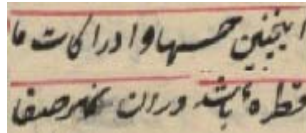 اینچنین حسها و ادراکات ما
قطره باشد در آن نهر صفا